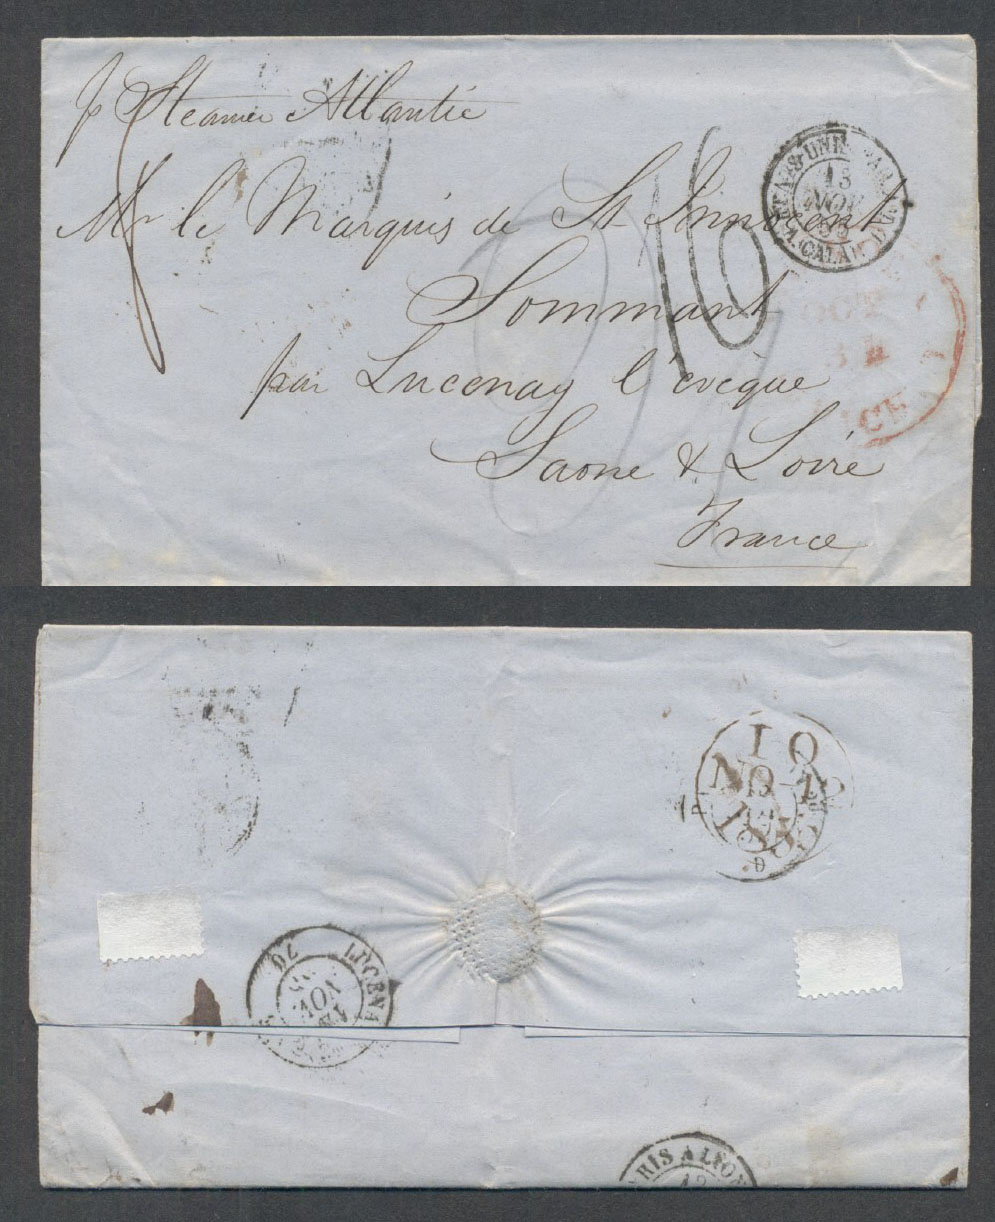 p Steamer Atlantic
Mr le Marquis de St Innocent
Sommant
par Lucenay l'evêque
Saone & Loire
France
16
ETATS-UNIS PAR
13
NOV.
53
CALAIS
OCT
10
NO 12
1853
LUCENAY
NOV.
53
PARIS A LYON